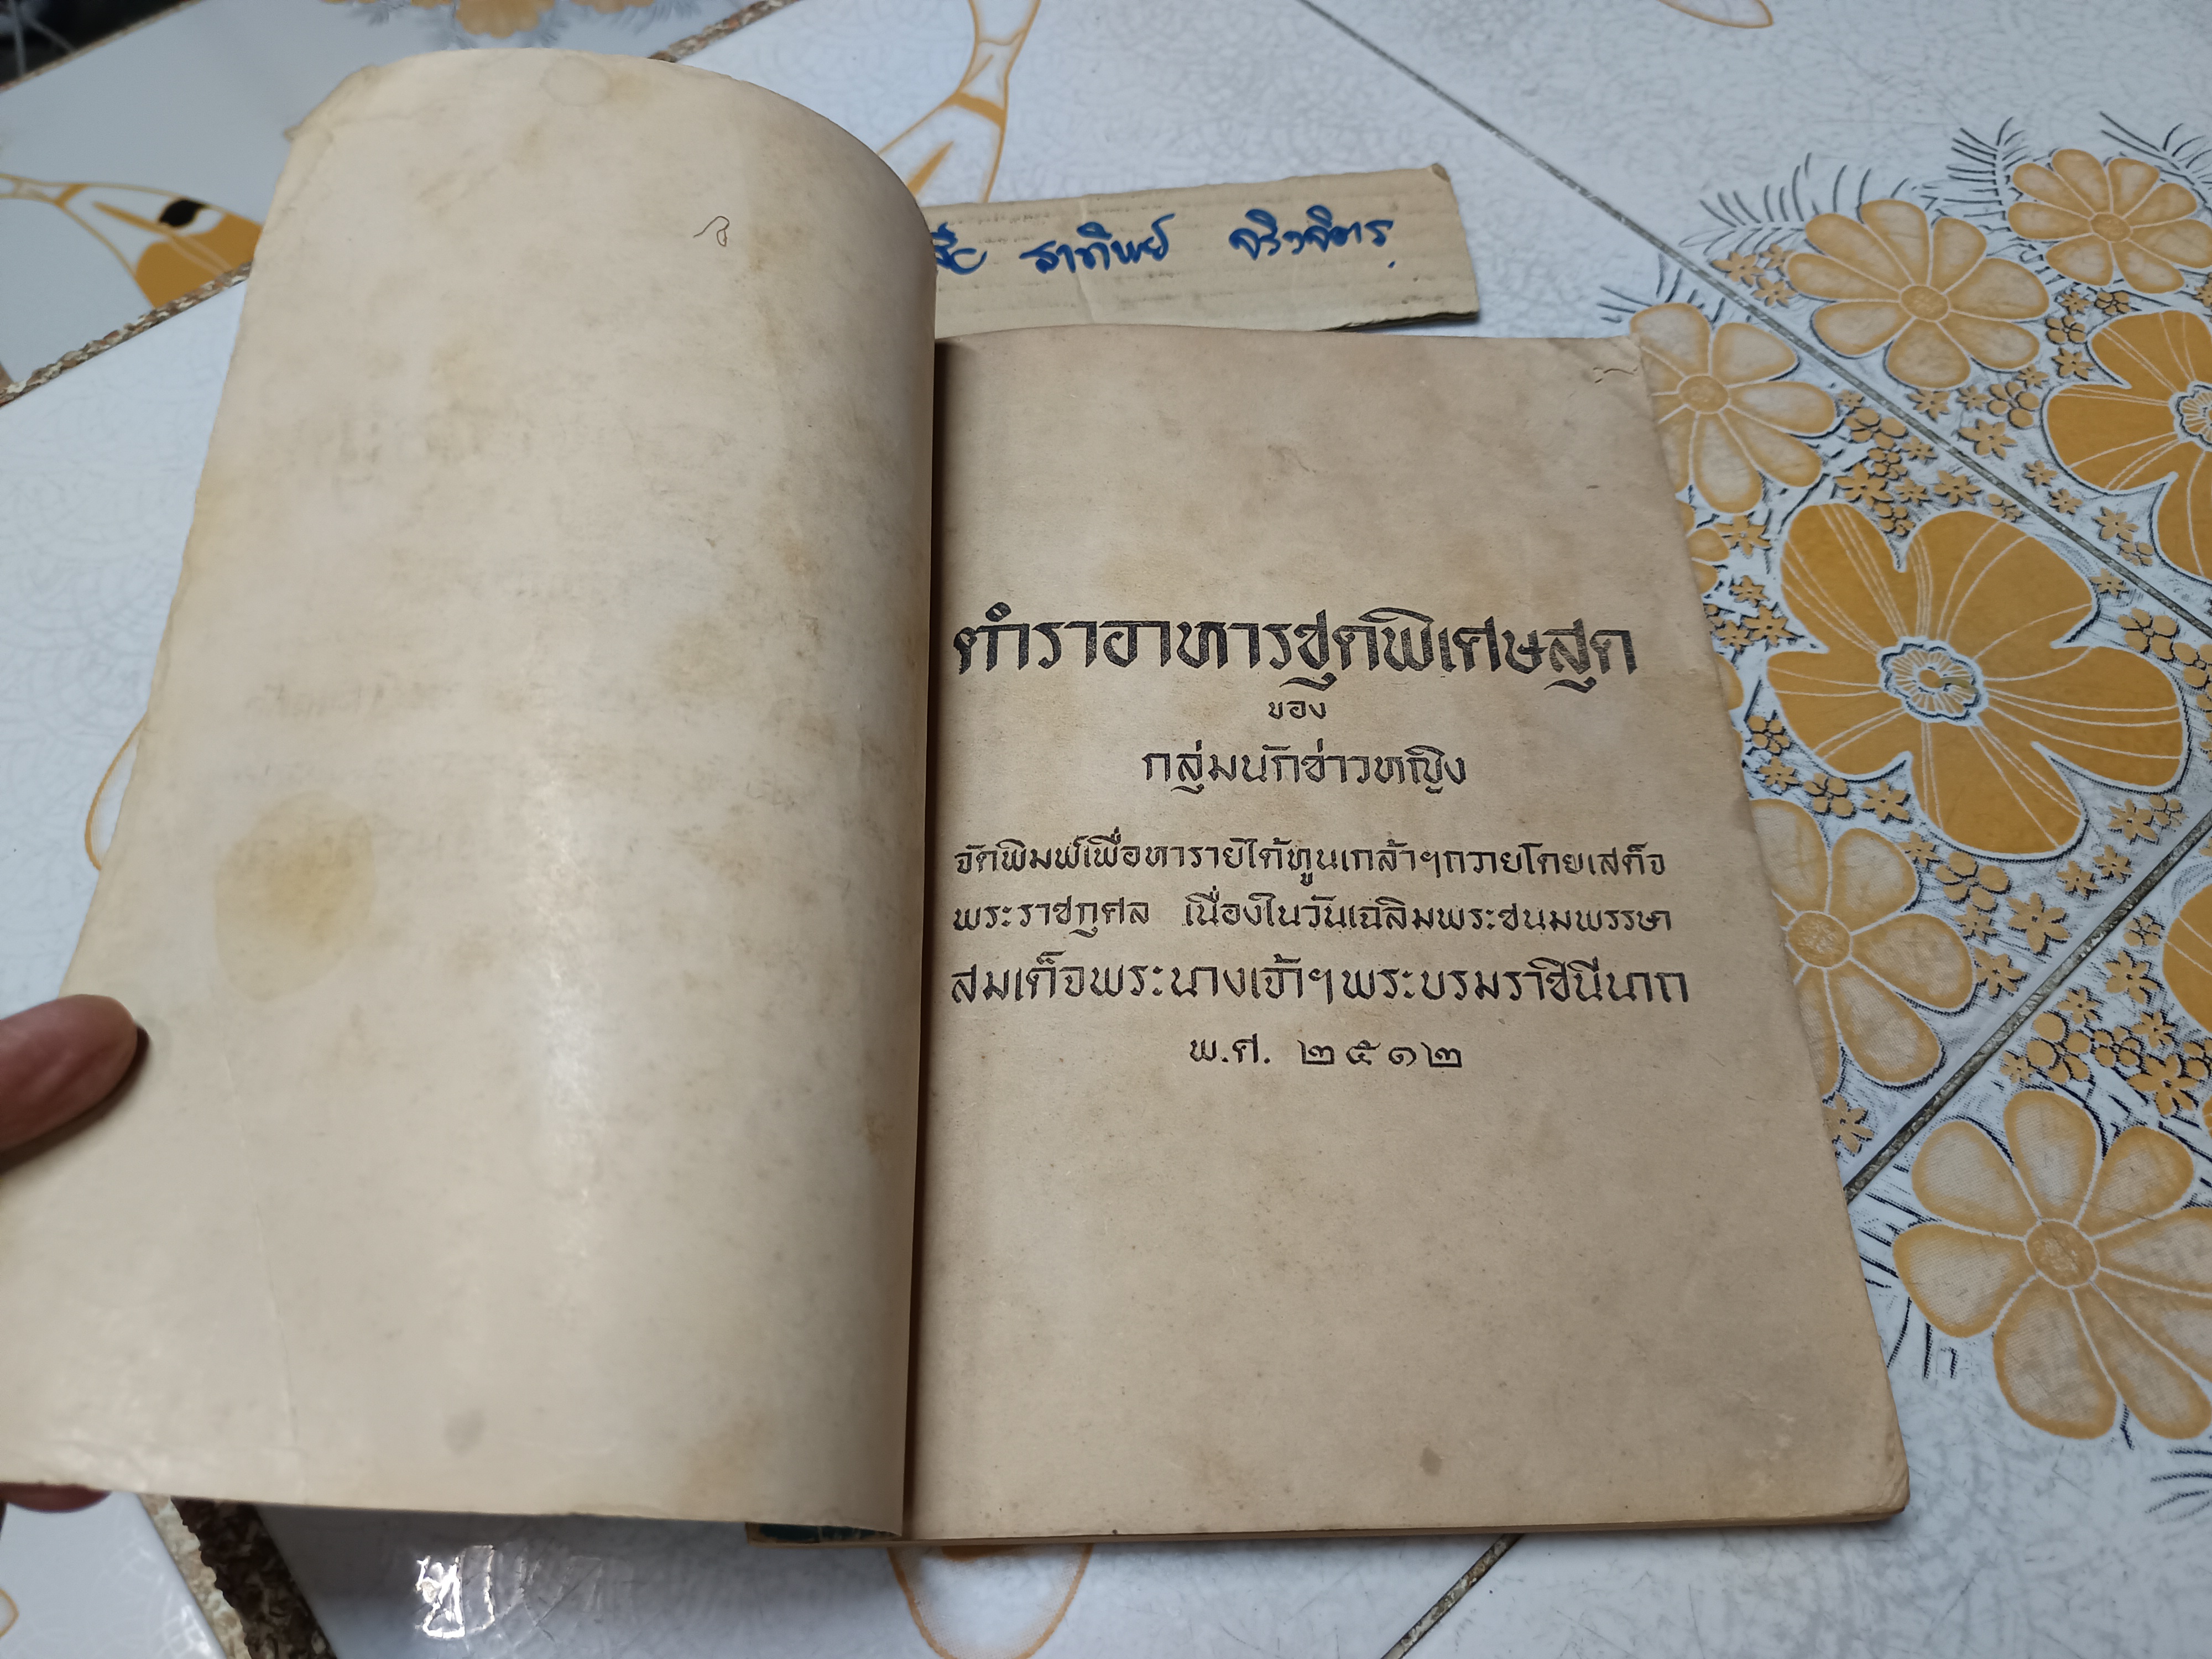 สาทิพย์
ตำราอาหารชุดพิเศษสุด
ของ
กลุ่มนักข่าวหญิง
จัดพิมพ์เพื่อหารายได้ทูนเกล้าฯถวายโดยเสด็จ
พระราชกุศล เนื่องในวันเฉลิมพระชนมพรรษา
สมเด็จพระนางเจ้าฯพระบรมราชินีนาถ
พ.ศ. ๒๕๑๒